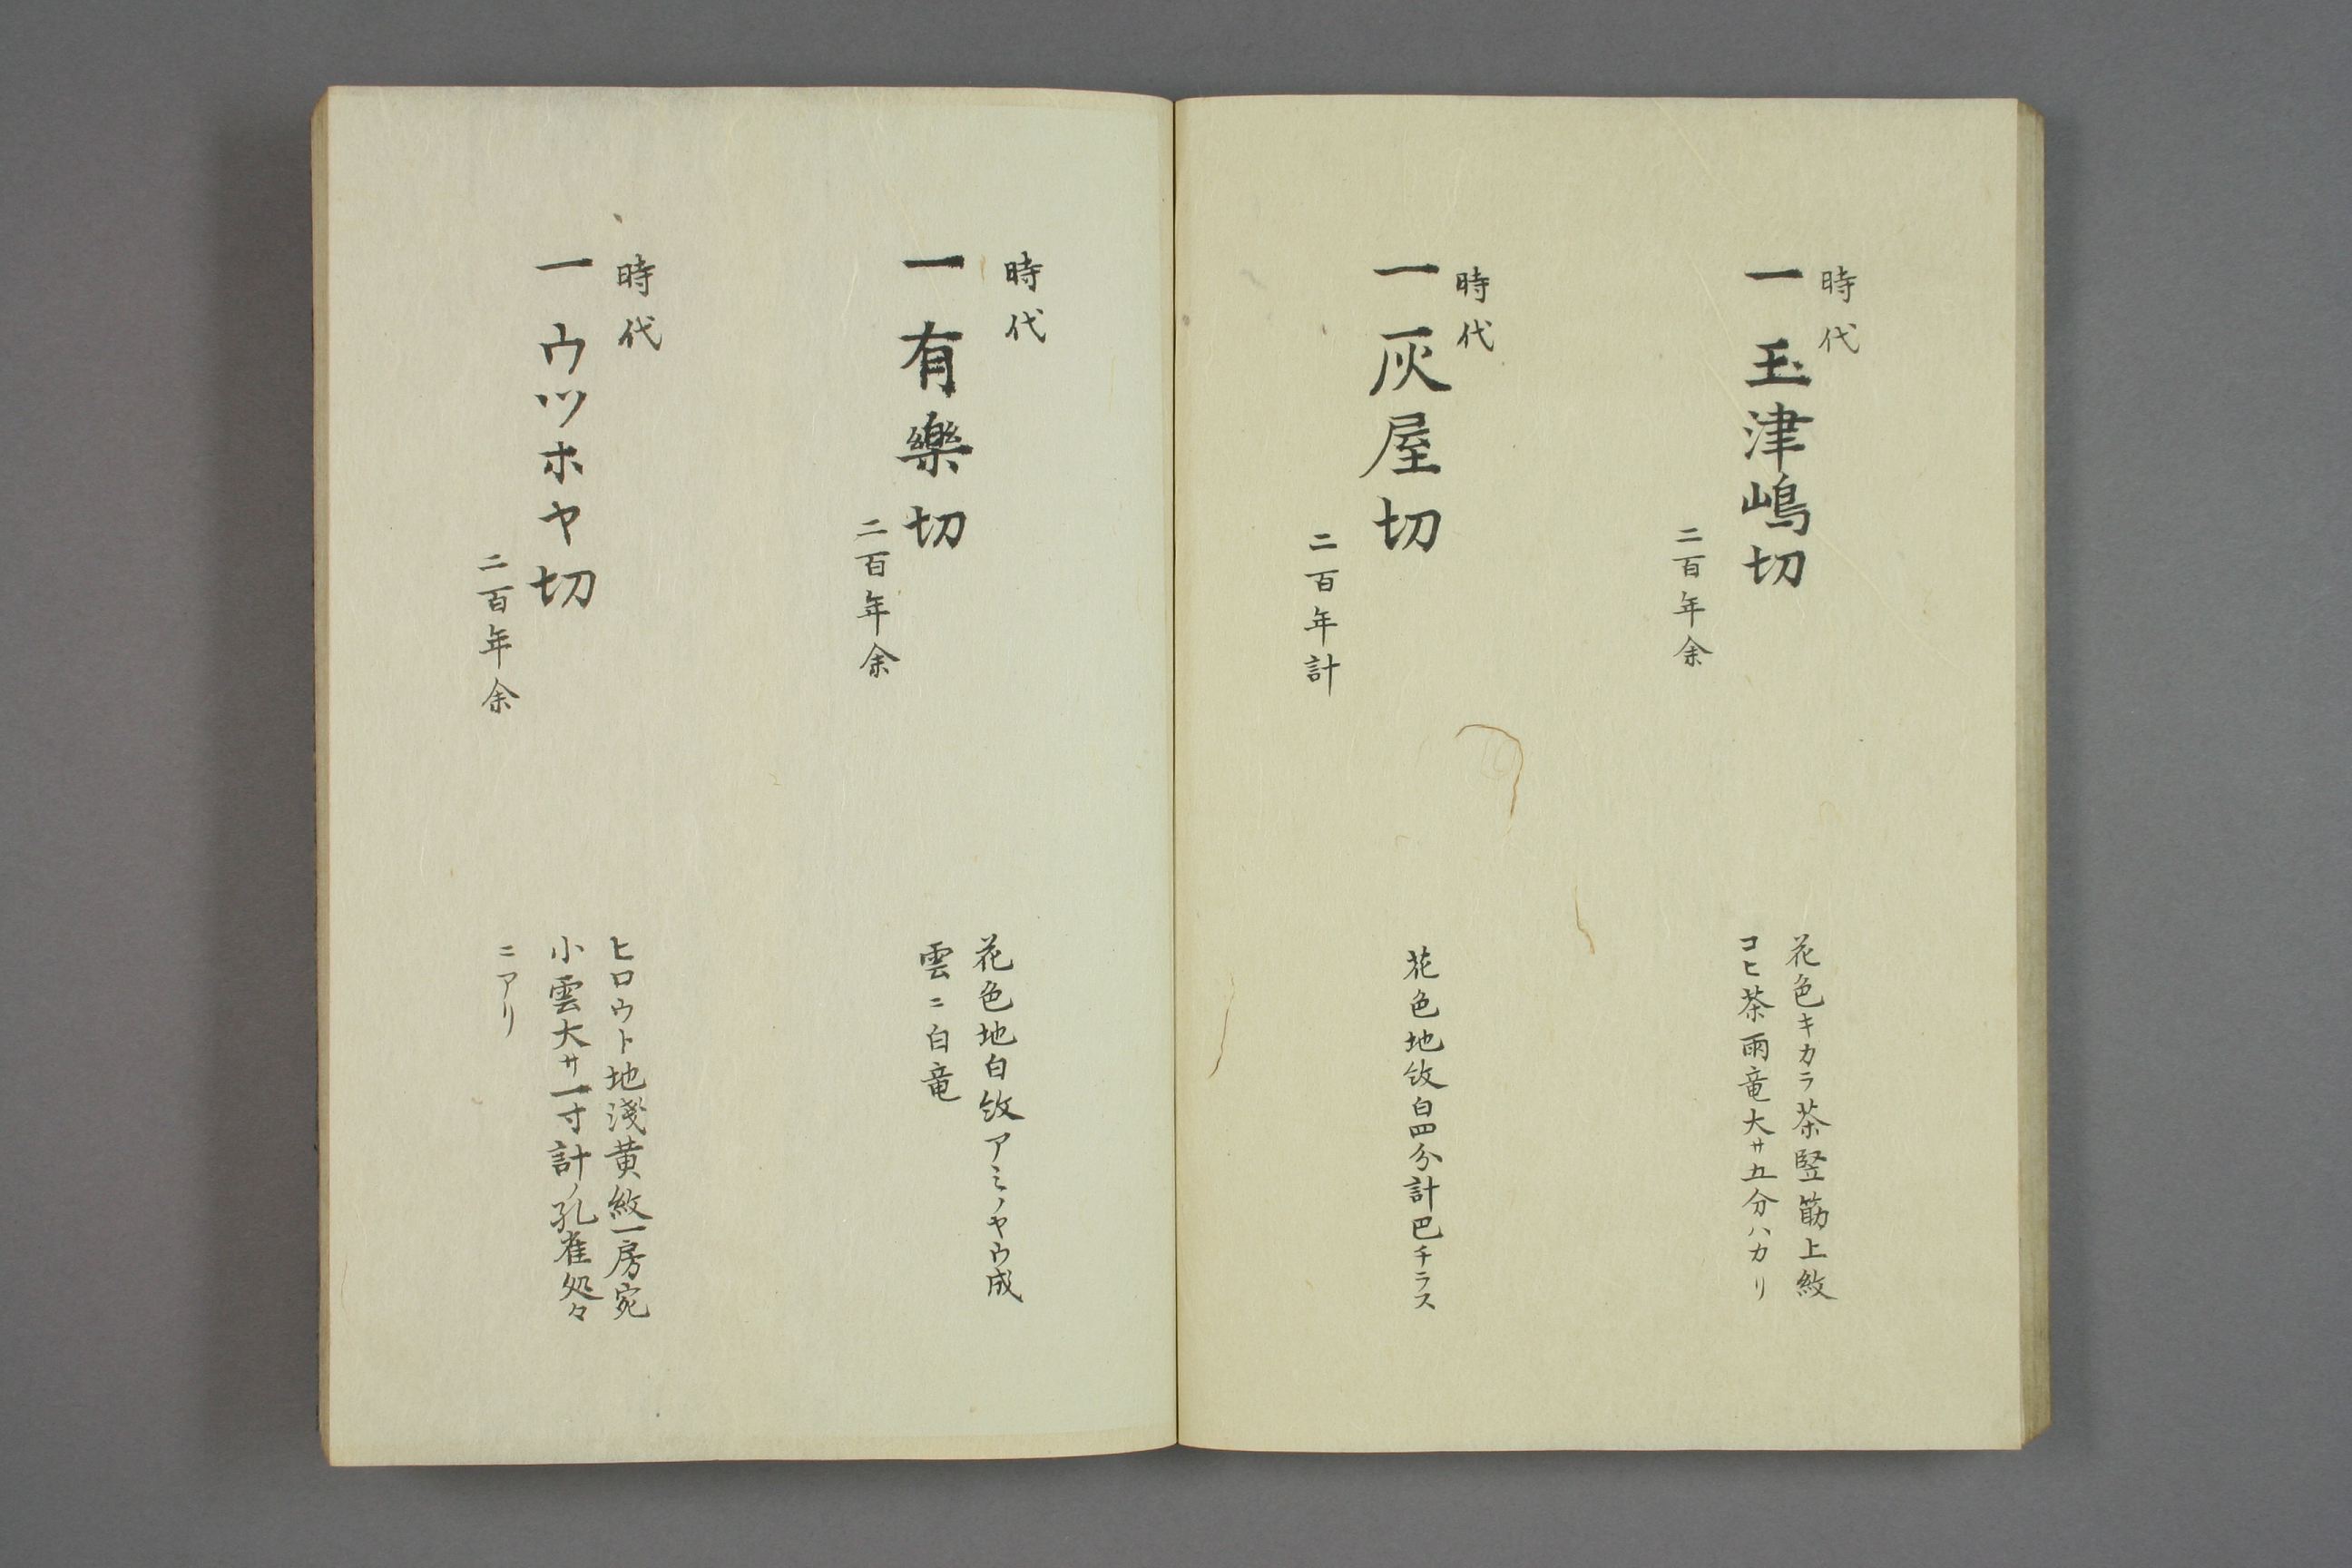 時代
一 玉津嶋切
二百年余
花色キカラ茶竪筋上紋
コヒ茶雨竜大サ五分ハカリ
時代
一 灰屋切
二百年計
花色地紋白四分計巴チラス
時代
一 有樂切
二百年余
花色地白紋アミノヤウ成
雲ニ白竜
時代
一 ウツホヤ切
二百年余
ヒロウト地淺黄紋一房宛
小雲大サ一寸計ノ孔雀処々
ニアリ